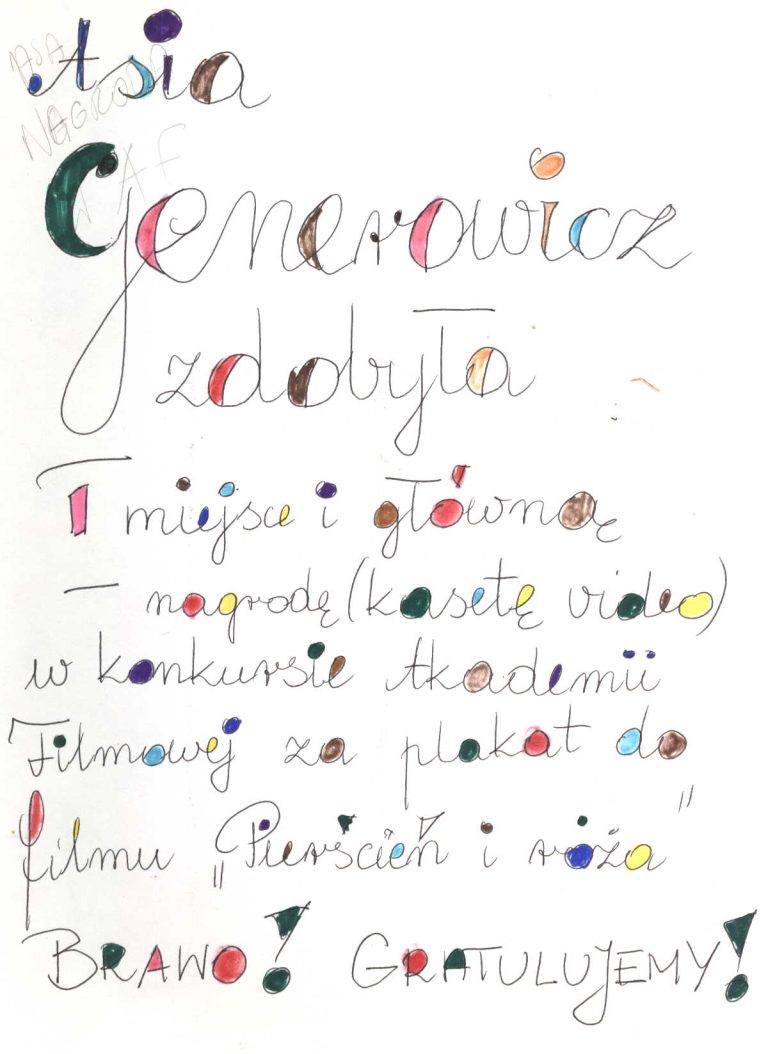 Asia
Generowicz
zdobyła
I miejsce i główną
nagrodę (kasetę video)
w konkursie Akademii
Filmowej za plakat do
filmu „Pierścień i róża”
BRAWO! GRATULUJEMY!